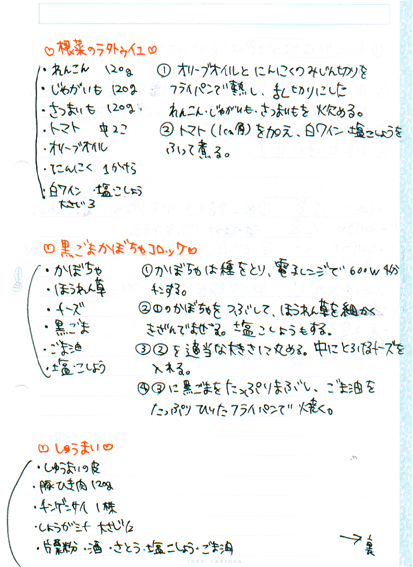 ♡根菜のラタトゥイユ♡
・れんこん 120g
・じゃがいも 120g
・さつまいも 120g
・トマト 中2コ
・オリーブオイル
・にんにく 1かけら
・白ワイン ・塩こしょう
大さじ3
①オリーブオイルとにんにくのみじん切りを
フライパンで熱し、乱切りにした
れんこん・じゃがいも・さつまいもを炒める。
②トマト(1cm角)を加え、白ワイン・塩こしょうを
ふって煮る。
♡黒ごまかぼちゃコロッケ♡
・かぼちゃ
・ほうれん草
・チーズ
・黒ごま
・ごま油
・塩・こしょう
①かぼちゃは種をとり、電子レンジで600W4分
チンする。
②①のかぼちゃをつぶして、ほうれん草を細かく
きざんでまぜる。塩こしょうもする。
③②を適当な大きさに丸める。中にとろけるチーズを
入れる。
④③に黒ごまをたっぷりまぶし、ごま油を
たっぷりひいたフライパンで焼く。
♡しゅうまい♡
・しゅうまいの皮
・豚ひき肉 120g
・チンゲンサイ 1株
・しょうがミジン 大さじ1/2
・片栗粉・酒・さとう・塩こしょう・ごま油
→裏